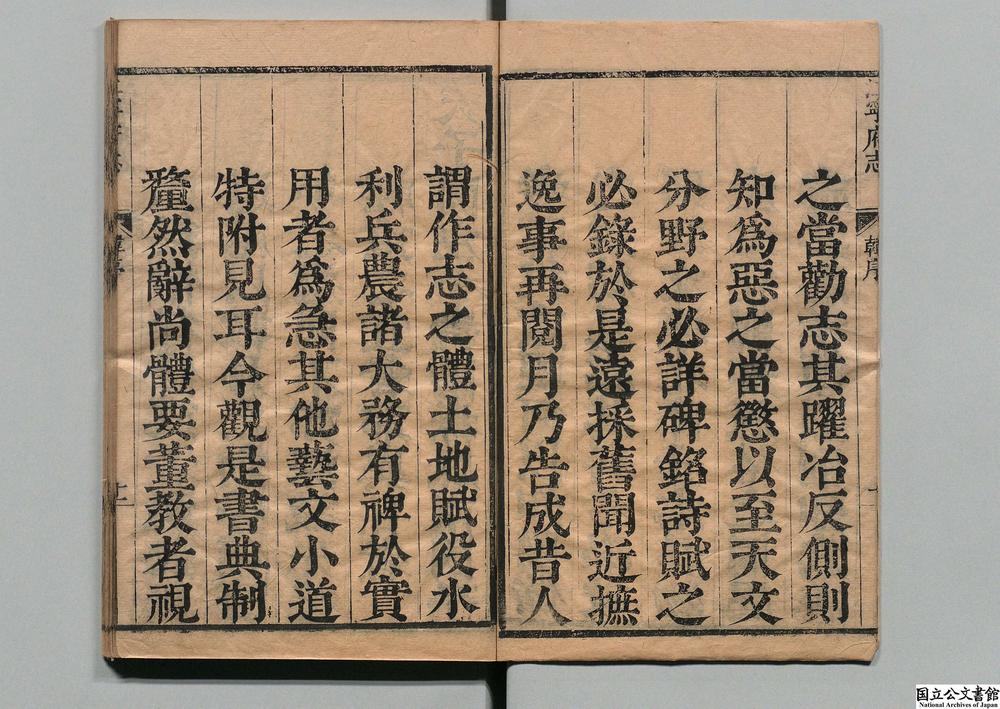 江寧府志
韓序
之當勸志其躍冶反側則
知爲惡之當懲以至天文
分野之必詳碑銘詩賦之
必錄於是遠採舊聞近摭
逸事再閱月乃告成昔人
謂作志之體土地賦役水
利兵農諸大務有裨於實
用者爲急其他藝文小道
特附見耳今觀是書典制
釐然辭尚體要董教者視
国立公文書館
National Archives of Japan